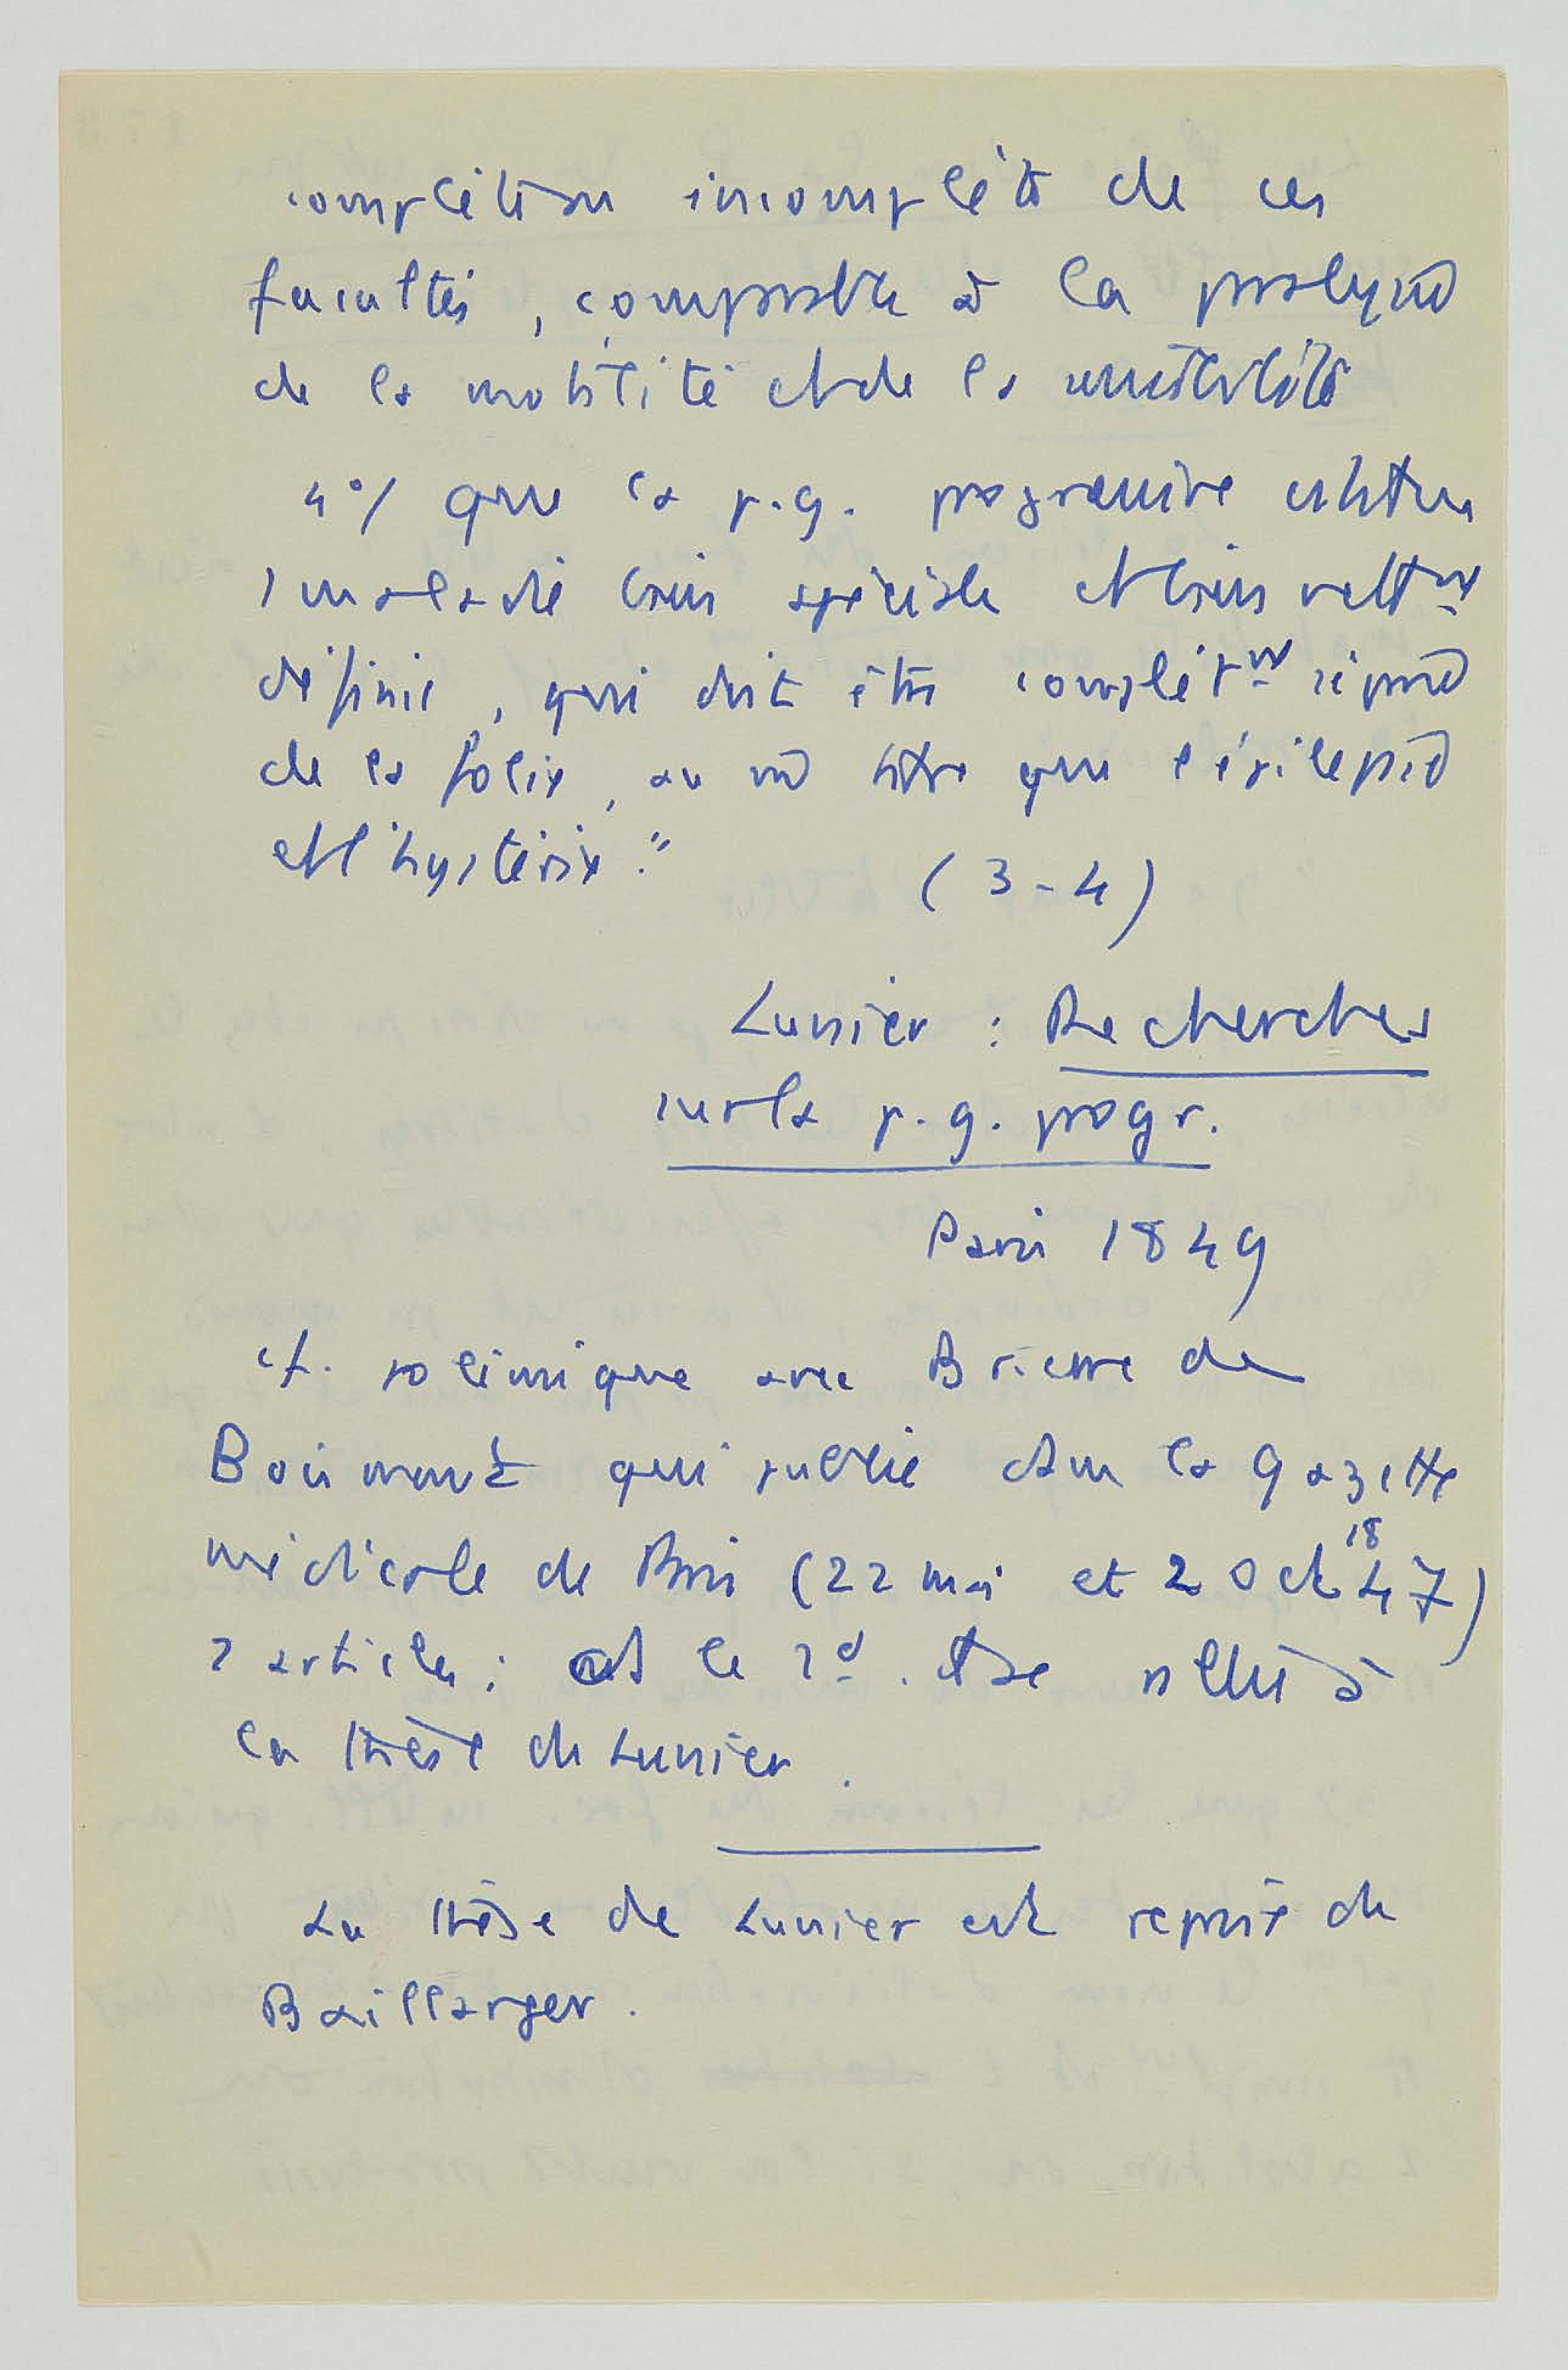 complétion incomplète de ces
facultés, comparable à la paralysie
de la motilité et de la sensibilité
4°/ que la p.g. progressive est une
maladie bien spéciale et bien nettᵗ
définie, qui doit être complètᵗ séparée
de la folie, au m̂ titre que l'épilepsie
et l'hystérie."
(3-4)
Lunier : Recherches
sur la p.g. progr.
Paris 1849
cf. polémique avec Brierre de
Boismont qui publie dans la Gazette
médicale de Paris (22 mai et 2 Oct 1847)
2 articles; le 2d. à
la thèse de Lunier.
La thèse de Lunier est reprise de
Baillarger.